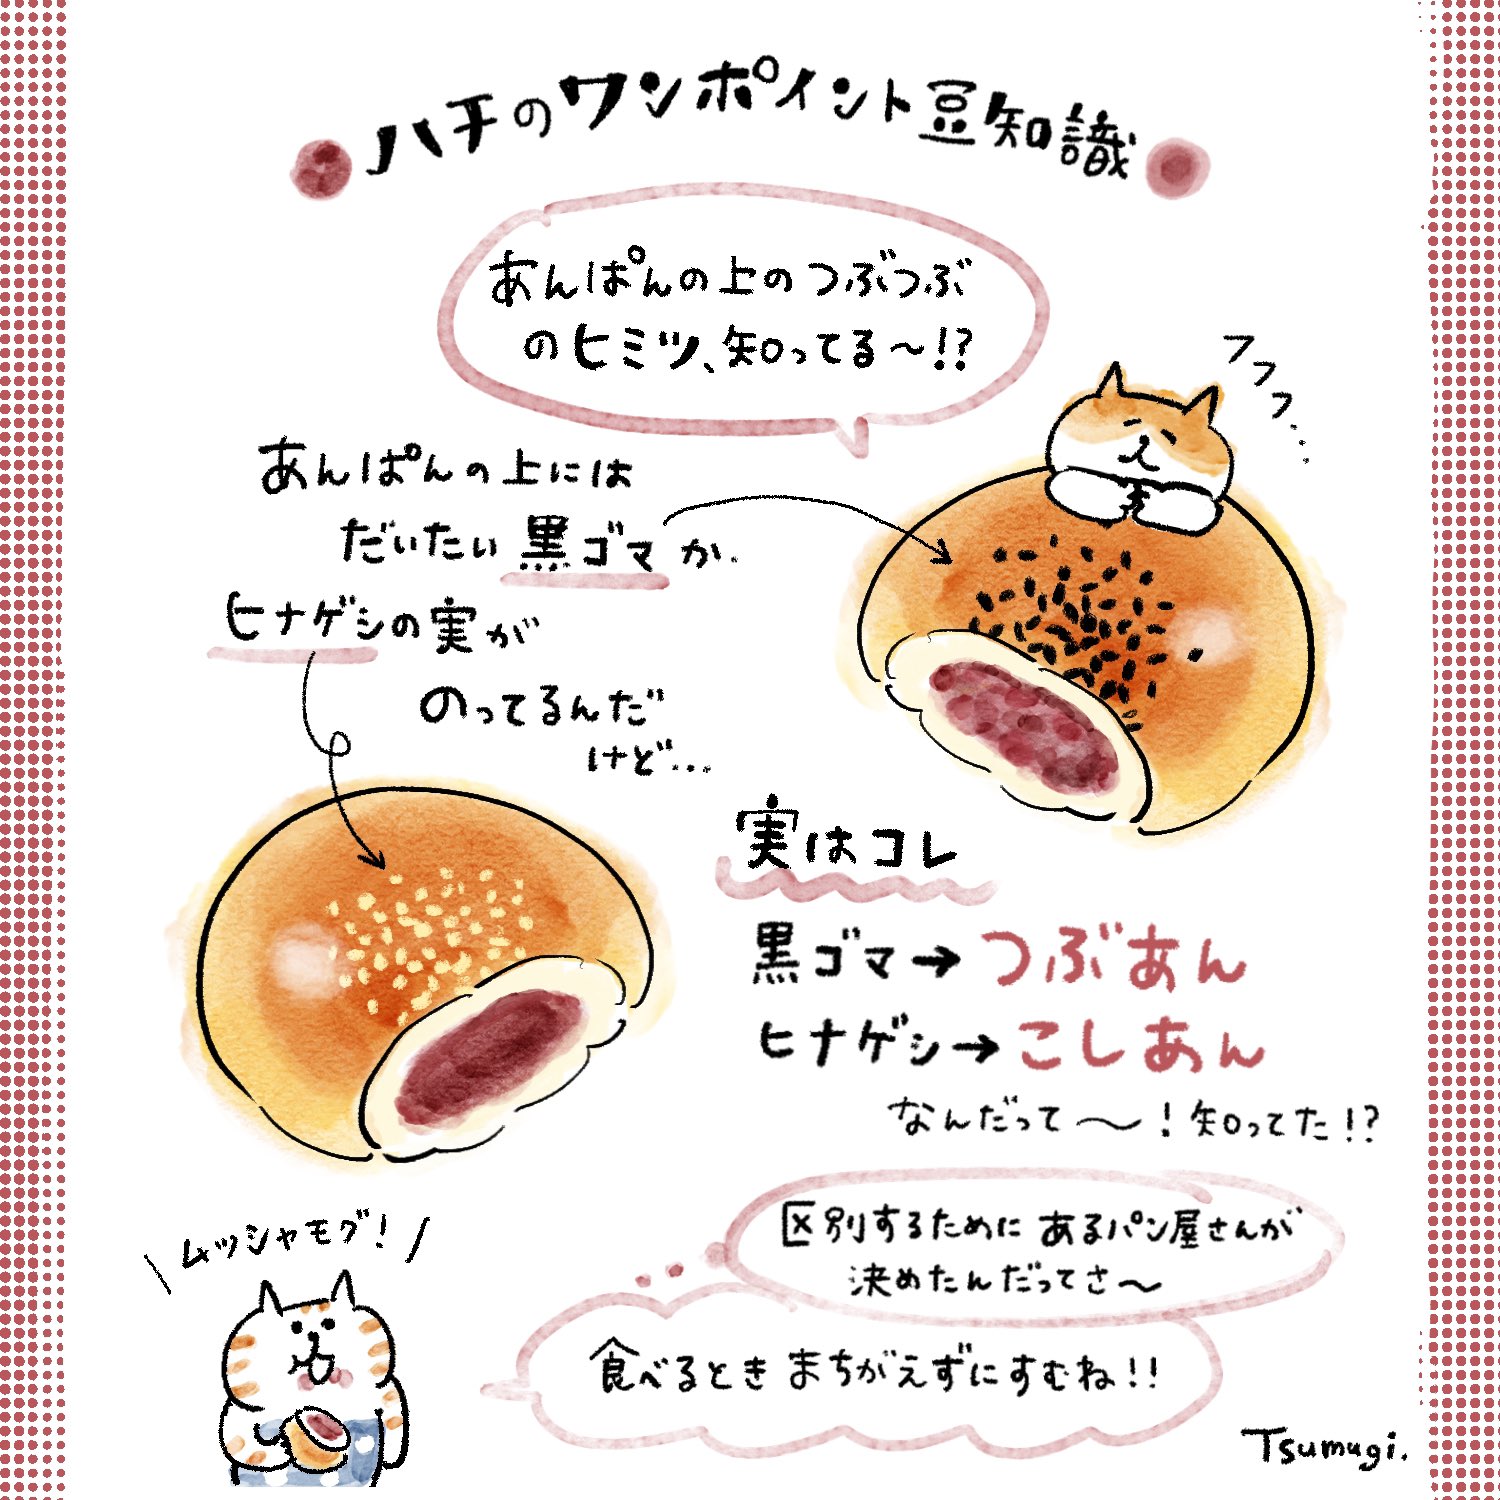 ハチのワンポイント豆知識
あんぱんの上のつぶつぶ
のヒミツ、知ってる〜!?
フフフ...
あんぱんの上には
だいたい黒ゴマか、
ヒナゲシの実が
のってるんだ
けど...
実はコレ
黒ゴマ→つぶあん
ヒナゲシ→こしあん
なんだって〜!知ってた!?
区別するために あるパン屋さんが
決めたんだってさ〜
ムッシャモグ!
食べるとき まちがえずにすむね!!
Tsumugi.